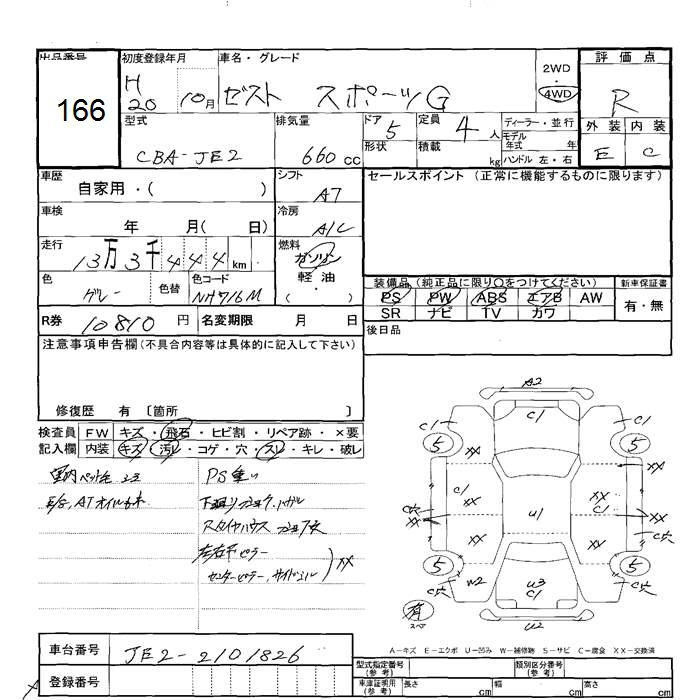 出品番号
166
初度登録年月
H
20 10月
車名・グレード
ゼスト スポーツG
2WD
4WD
評価点
R
外装 内装
E C
型式
CBA-JE2
排気量
660 cc
ドア 5
形状
定員 4 人
積載 kg
ディーラー・並行
モデル
年式 年
ハンドル 左・右
車歴
自家用・( )
シフト
A7
車検
年 月( 日)
冷房
A/C
走行
13万3千444 km
燃料
ガソリン
軽・油
( )
色
グレー
色替
色コード
NH716M
R券 10810 円
名変期限 月 日
セールスポイント(正常に機能するものに限ります)
装備品(純正品に限り○をつけてください)
新車保証書
PS PW ABS エアB AW
SR ナビ TV カワ
有・無
後日品
注意事項申告欄(不具合内容等は具体的に記入して下さい)
修復歴 有 〔箇所 〕
検査員
記入欄
FW キズ・飛石・ヒビ割・リペア跡・×要
内装 キズ・汚レ・コゲ・穴・スレ・キレ・破レ
PS重い
XX
A2
C1
C1
C1
5
5
XX
XX
XX
C1
XX
U1
XX
C1
XX
XX
5
5
W2
U3
C1
C穴
C穴
U2
有
スペア
A-キズ E-エクボ U-凹み W-補修跡 S-サビ C-腐食 XX-交換済
車台番号
JE2-2101826
登録番号
型式指定番号
(参考)
類別区分番号
(参考)
車庫証明用
(参考)
長さ cm
幅 cm
高さ cm